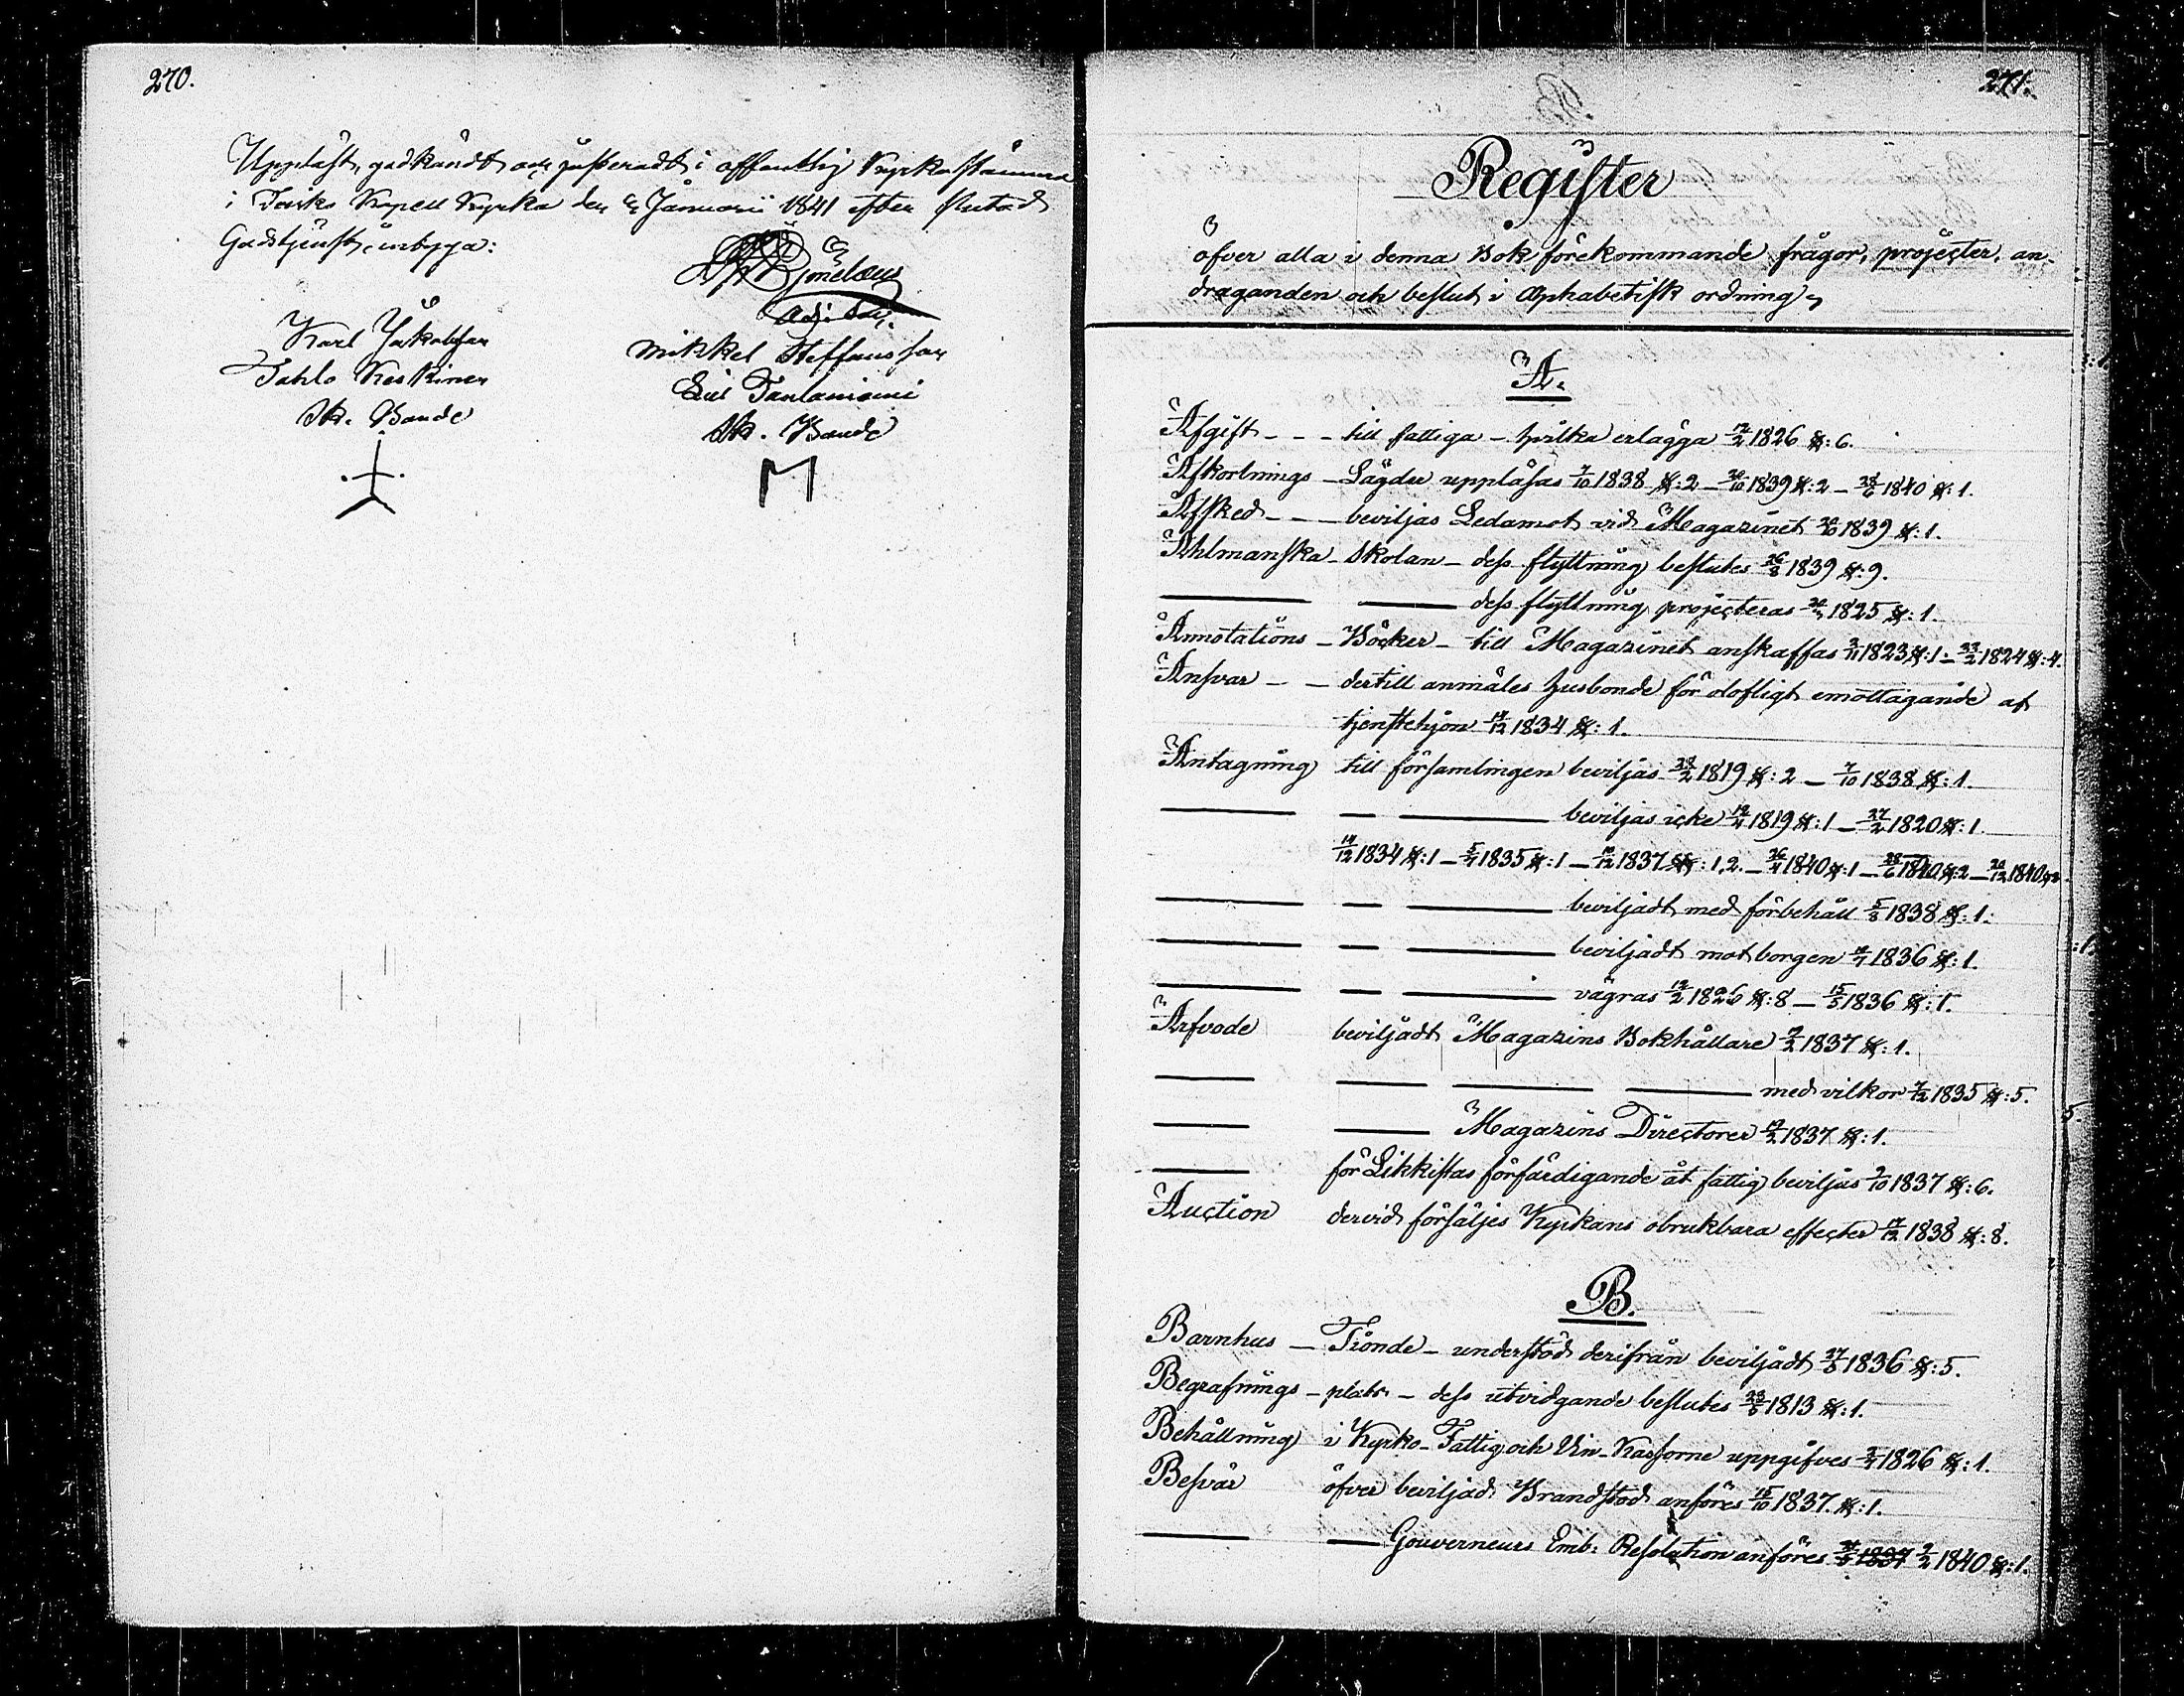 270.
Uppläst, godkändt och justeradt i offentlig Kyrkostämma
i Kapell Kyrka den Januarii 1841 efter slutad
Gudstjenst, intyga:
Björnelæus
Adj: Sac:
Karl Jakobsson
Pahlo Keskinen
Sk. Bonde
Mikkel Steffansson
Sk. Bonde
M
271.
Register
öfver alla i denna Bok förekommande frågor, projecter, an-
draganden och beslut i Alphabetisk ordning
A.
Afgift - - - till fattiga - hvilka erlägga 12/2 1826 §: 6.
Afkortnings - Längder uppläsas 7/10 1838 §: 2 - 20/10 1839 §: 2 - 28/6 1840 §: 1.
Afsked - - - beviljas Ledamot vid Magazinet 20/10 1839 §: 1.
Ahlmanska - Skolan - dess flyttning beslutes 26/8 1839 §: 9.
dess flyttning projecteras 1825 §: 1.
Annotations - Böcker - till Magazinet anskaffas 2/11 1823 §: 1 - 22/2 1824 §: 4.
Ansvar - - dertill anmäles husbonde för olofligt emottagande af
tjenstehjon 14/12 1834 §: 1.
Antagning till församlingen beviljas 28/2 1819 §: 2 - 7/10 1838 §: 1.
beviljas icke 1819 §: 1 - 27/2 1820 §: 1
14/12 1834 §: 1 - 1835 §: 1 - 10/12 1837 §§: 1, 2. - 26/4 1840 §: 1 - 28/6 1840 §: 2 - 20/12 1840
beviljadt med förbehåll 5/8 1838 §: 1.
beviljadt mot borgen 1836 §: 1.
vägras 12/2 1826 §: 8 - 15/5 1836 §: 1.
Arfvode beviljadt Magazins Bokhållare 1837 §: 1.
med vilkor 1835 §: 5.
Magazins Directorer 1837 §: 1.
för Likkistas förfärdigande åt fattig beviljas 1/10 1837 §: 6.
Auction dervid försäljes Kyrkans obrukbara effecter 1838 §: 8.
B.
Barnhus - Fonde - understöd derifrån beviljadt 1836 §: 5.
Begrafnings - plats - dess utvidgande beslutes 1813 §: 1.
Behållning i Kyrko- Fattig och Vin- Kassorne uppgifves 1826 §: 1.
Besvär öfver beviljad Brandstod anföres 15/10 1837. §: 1.
Gouverneurs Emb: Resolution anföres 1837 2/2 1840 §: 1.